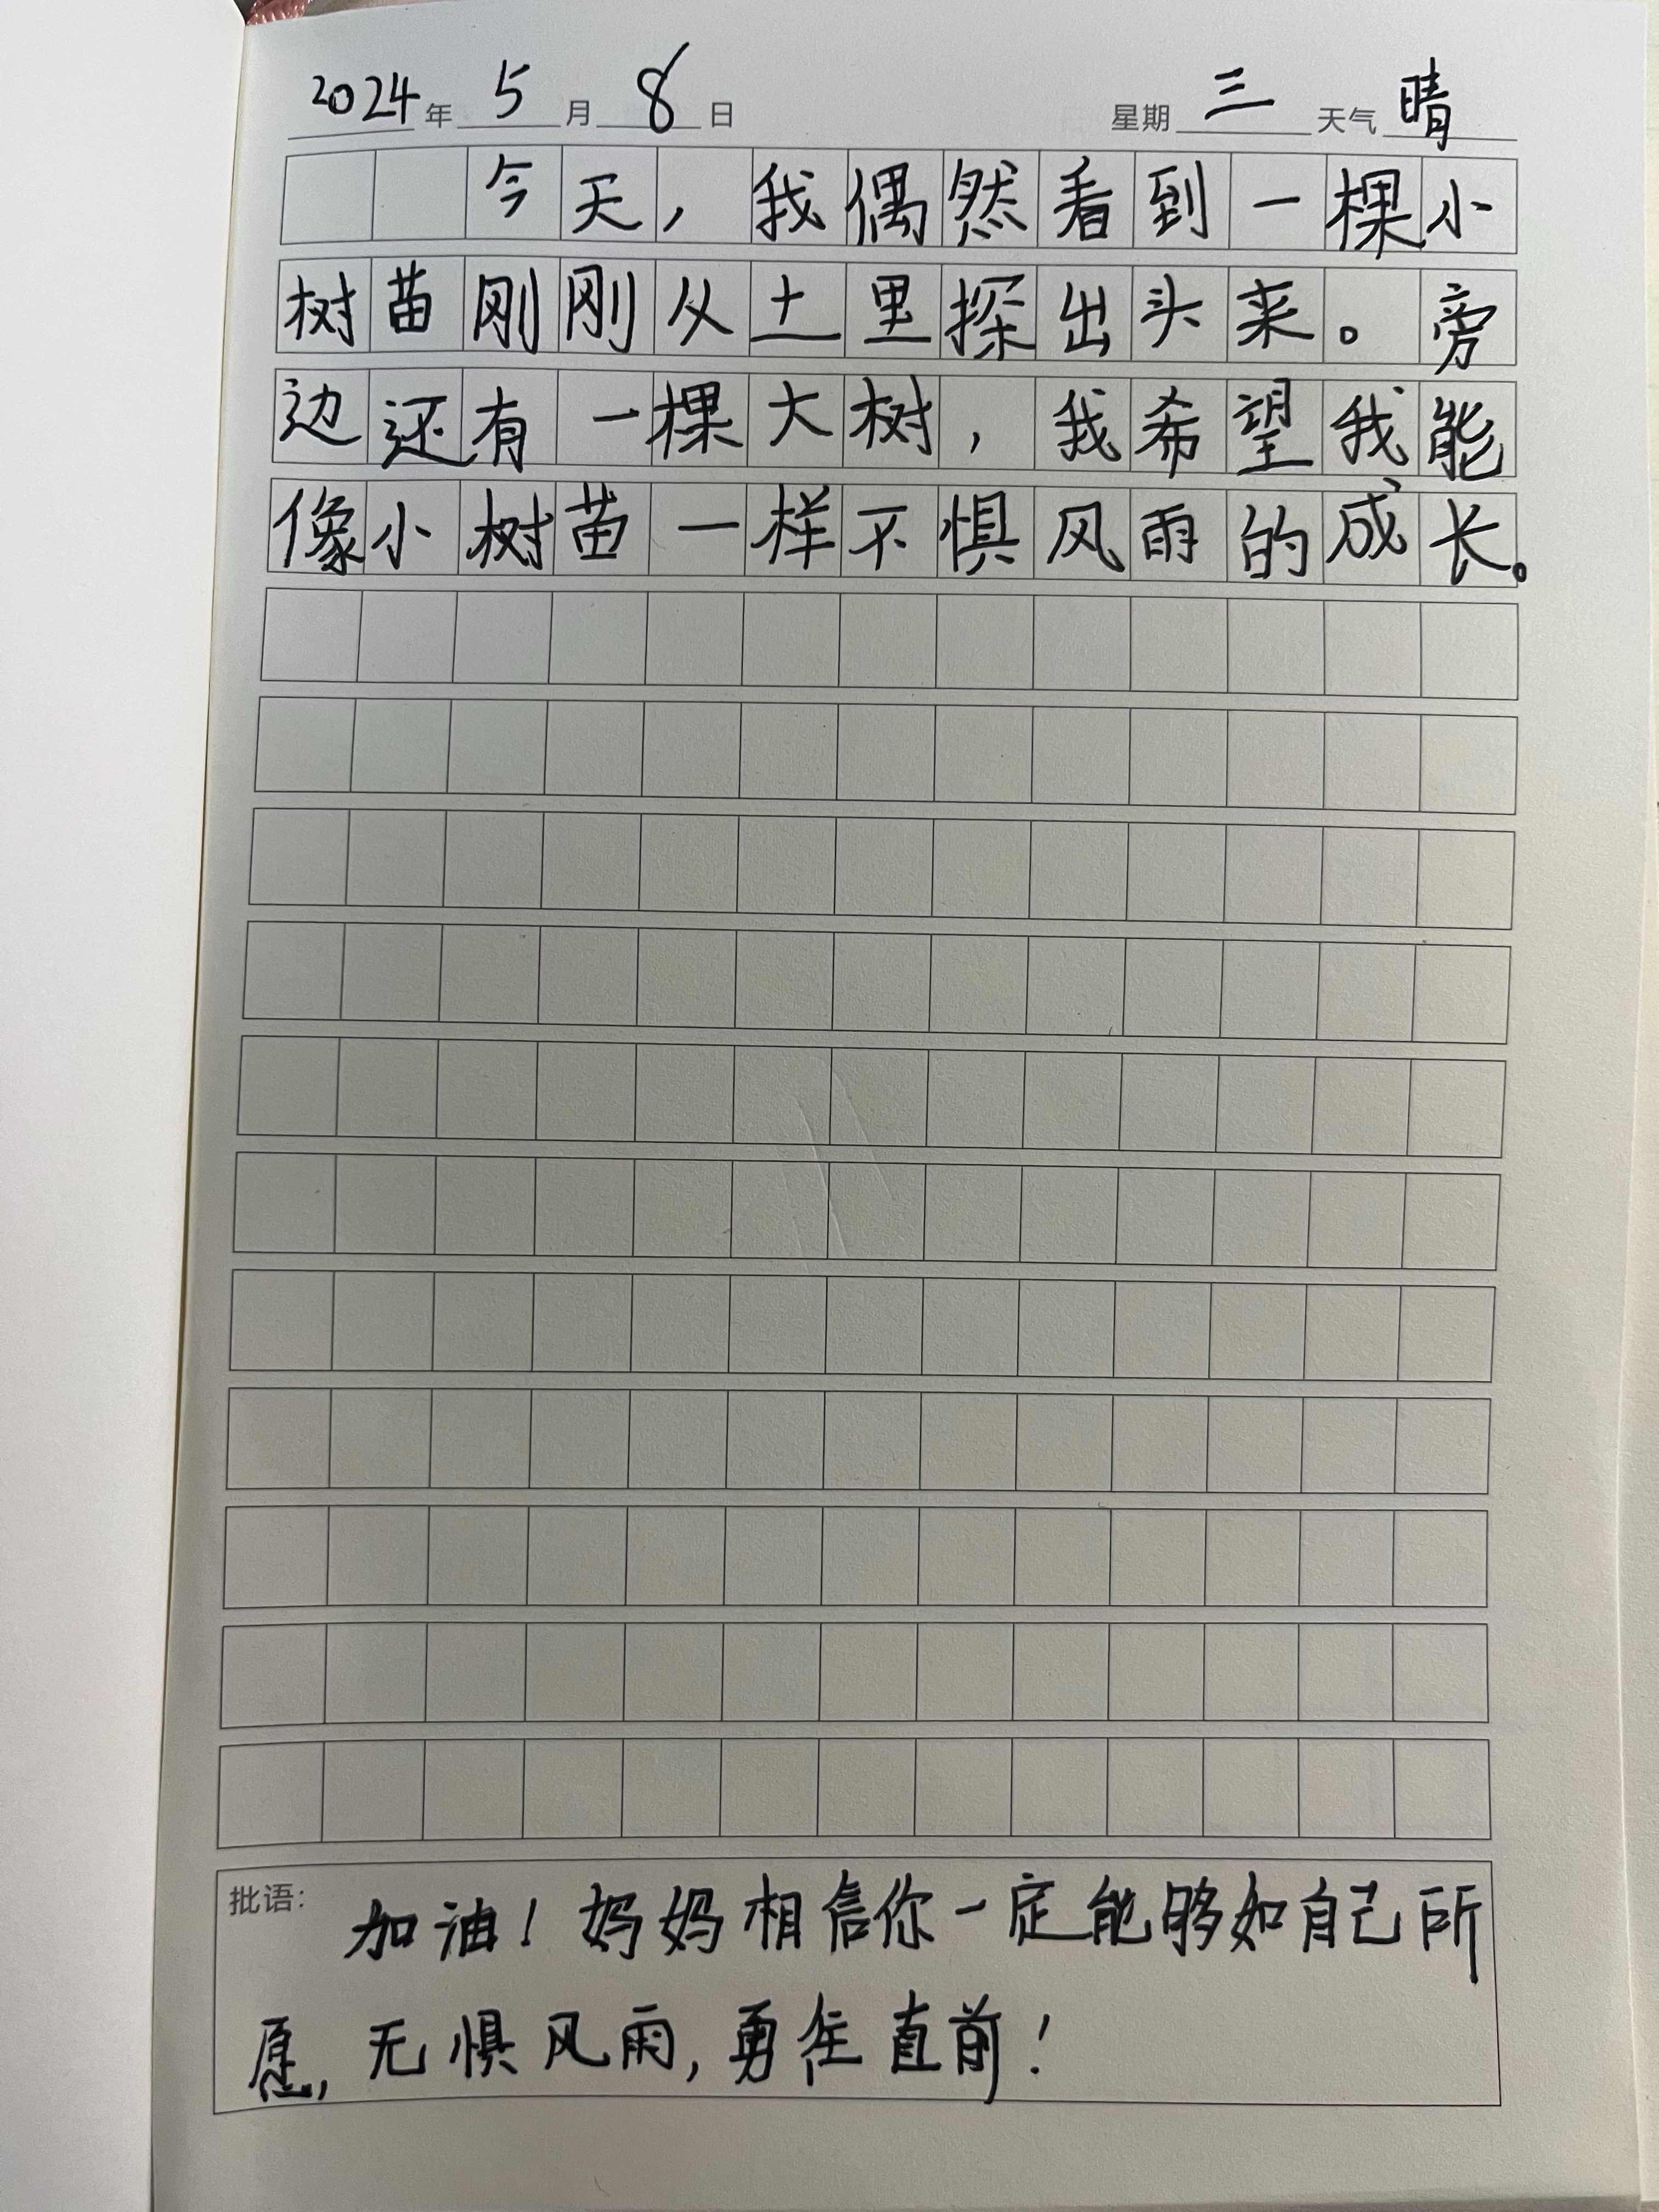 2024年5月8日 星期三 天气晴
今天，我偶然看到一棵小
树苗刚刚从土里探出头来。旁
边还有一棵大树，我希望我能
像小树苗一样不惧风雨的成长。
批语：加油！妈妈相信你一定能够如自己所
愿，无惧风雨，勇往直前！